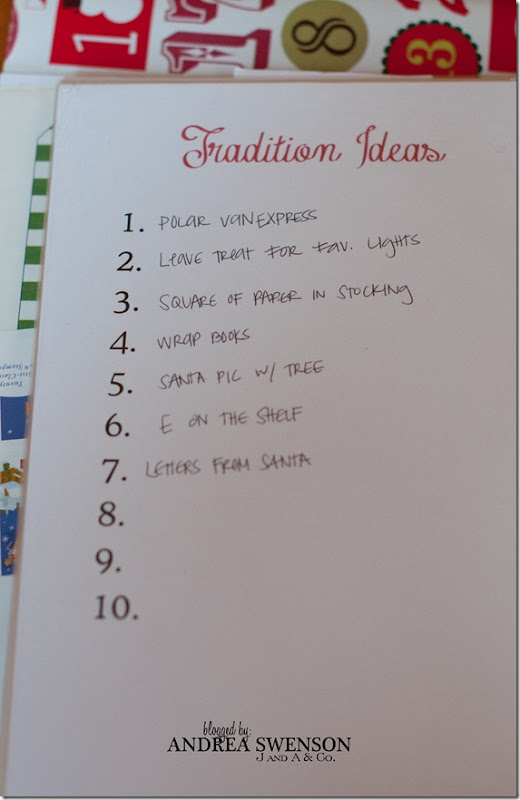 13
17
8
13
Tradition Ideas
1. POLAR VANEXPRESS
2. LEAVE TREAT FOR FAV. LIGHTS
3. SQUARE OF PAPER IN STOCKING
4. WRAP BOOKS
5. SANTA PIC W/ TREE
6. E ON THE SHELF
7. LETTERS FROM SANTA
8.
9.
10.
blogged by:
ANDREA SWENSON
J AND A & CO.